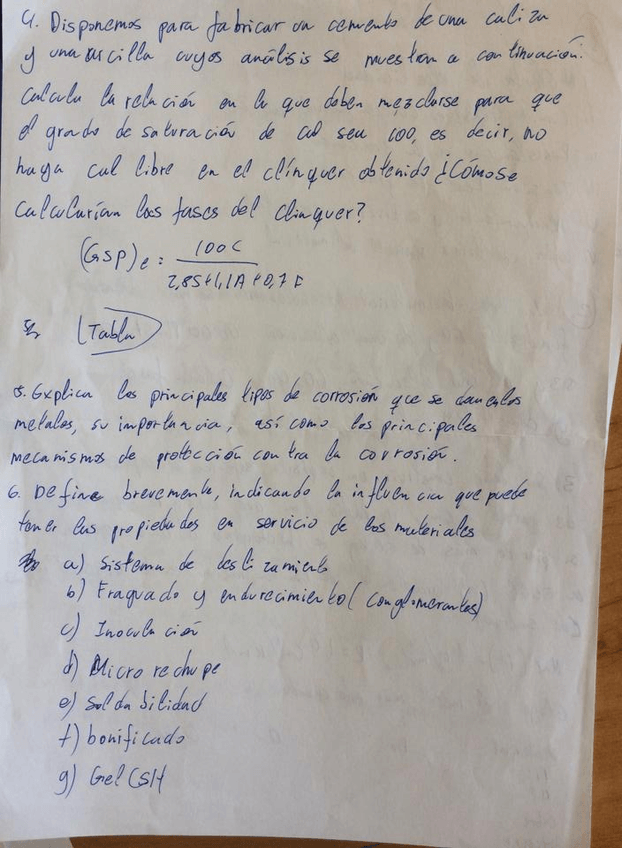 4. Disponemos para fabricar un cemento de una caliza
y una arcilla cuyos análisis se muestran a continuación.
Calcula la relación en la que deben mezclarse para que
el grado de saturación de cal sea 100, es decir, no
haya cal libre en el clínquer obtenido ¿Cómo se
calcularían las fases del clinquer?
(GSP)e = 100C
2,8S+1,1A+0,7F
(Tabla)
5. Explica los principales tipos de corrosión que se dan en los
metales, su importancia, así como los principales
mecanismos de protección contra la corrosión.
6. Define brevemente, indicando la influencia que puede
tener las propiedades en servicio de los materiales
a) Sistema de deslizamiento
b) Fraguado y endurecimiento (conglomerantes)
c) Inoculación
d) Micro rechupe
e) Soldabilidad
f) bonificado
g) Gel CSH